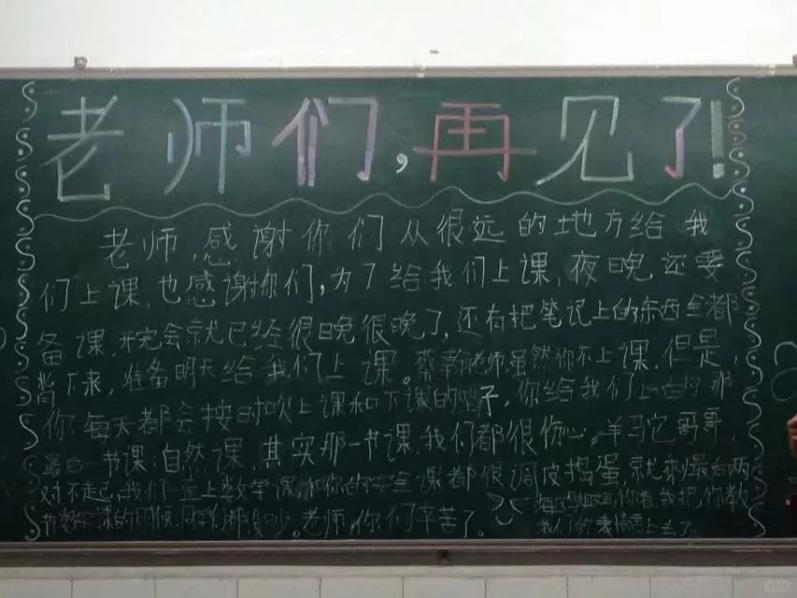 老师们,再见了!
老师,感谢你们从很远的地方给我
们上课,也感谢你们,为了给我们上课,夜晚还要
备课,开完会就已经很晚很晚了,还有把笔记上的东西全都
背下来,准备明天给我们上课。蔡 老师,虽然你不上课,但是,
你每天都会按时吹上课和下课的哨子,你给我们上的那
最后一节课:自然课,其实那一节课,我们都很伤心。 哥哥,
对不起,我们一直上数学课和你的安全课都很调皮捣蛋,就剩最后两
节 课的时候,同学们都没吵。老师,你们辛苦了。
我把你教
我们的 上去了。